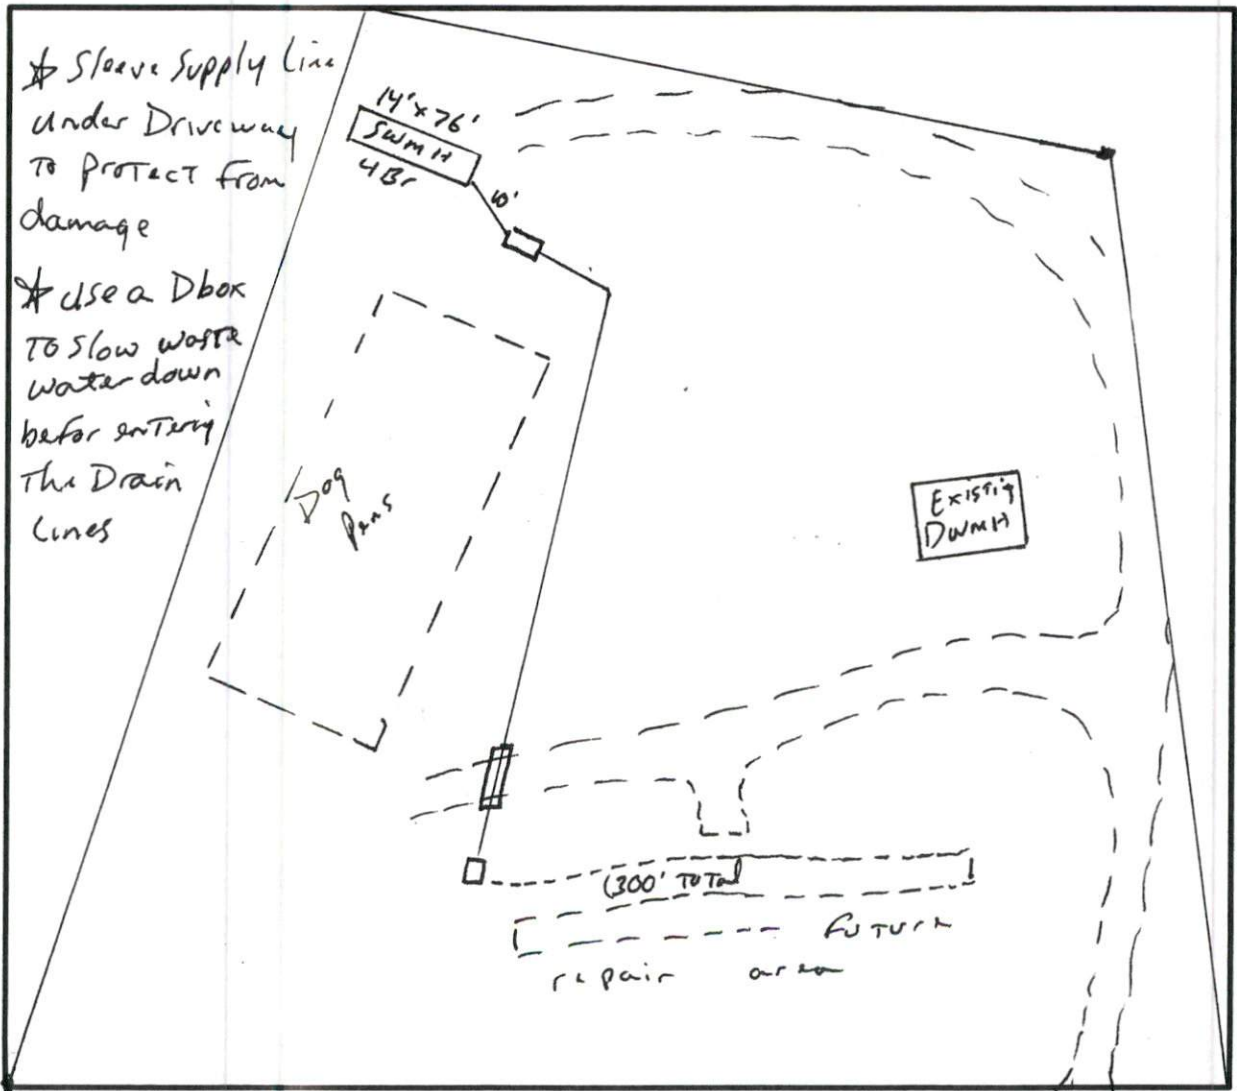 * Sleeve Supply Line
under Driveway
To protect from
damage
* Use a Dbox
To slow waste
water down
befor entering
The Drain
Lines
14' x 76'
SWMH
4Br
10'
Dog
Pens
Existig
DWMH
(300' Total
future
repair area